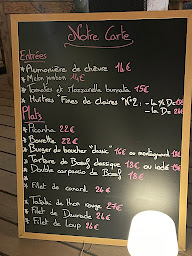 Notre Carte
Entrées
* Aumonière de chèvre 14€
* Melon jambon 14€
* Tomates et Mozzarella burrata 15€
* Huîtres Fines de Claires "N°2" : - la
- la De
Plats
* Picanha 22€
* Bavette 22€
* Burger du boucher "classic" 16€ ou montagnard
* Tartare de Bœuf classique 18€ ou
* Double carpaccio de Bœuf 18€
* Filet de canard 24€
* Tataki de thon rouge 27€
* Filet de Daurade 24€
* Filet de Loup 24€